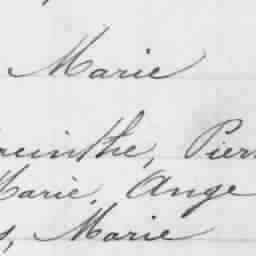 Marie
acinthe, Pier
Marie, Ange
s, Marie